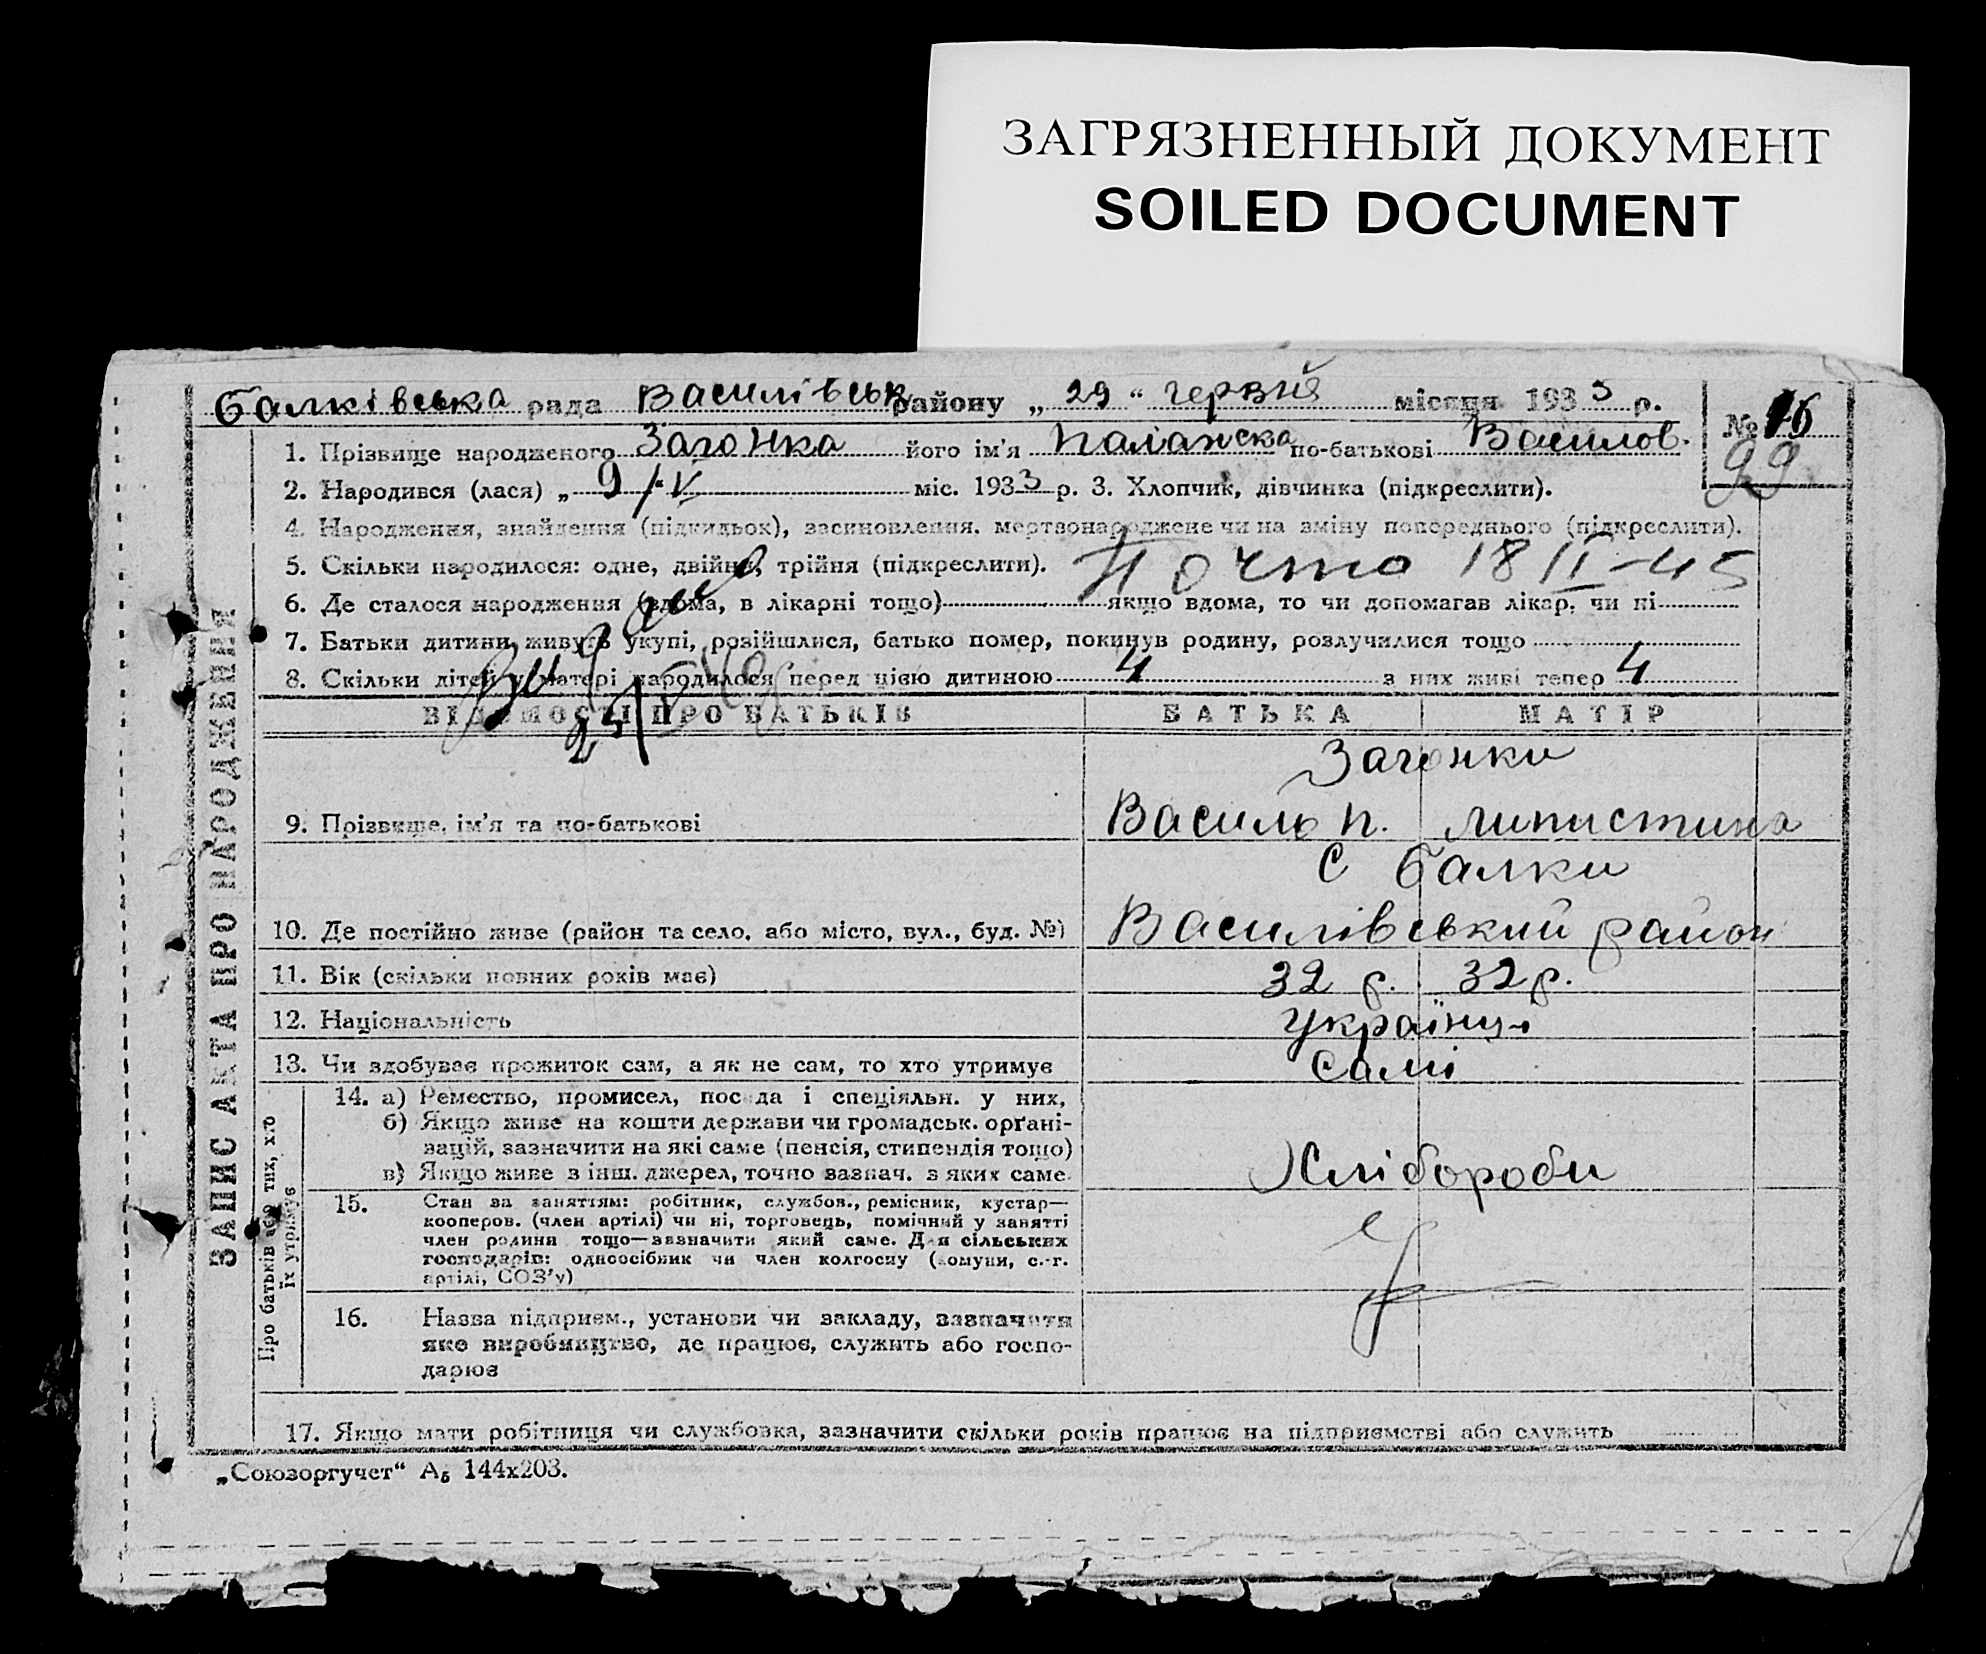 ЗАГРЯЗНЕННЫЙ ДОКУМЕНТ
SOILED DOCUMENT
Балківська рада Василівськ району „ 29 “ червня місяця 1933 р.
№ 16
99
1. Прізвище народженого Загонка його ім'я Палажска по-батькові Василов.
2. Народився (лася) „ 9/V міс. 1933 р. 3. Хлопчик, дівчинка (підкреслити).
4. Народження, знайдення (підкидьок), засиновлення, мертвонароджене чи на зміну попереднього (підкреслити).
5. Скільки народилося: одне, двійня, трійня (підкреслити). 18 II-45
6. Де сталося народження (вдома, в лікарні тощо) якщо вдома, то чи допомагав лікар, чи ні
7. Батьки дитини живуть укупі, розійшлися, батько помер, покинув родину, розлучилися тощо
8. Скільки дітей у матері народилося перед цією дитиною 4 з них живі тепер 4
ВІДОМОСТІ ПРО БАТЬКІВ БАТЬКА МАТІР
Загонки
9. Прізвище, ім'я та по-батькові Василь П.
с Балки
10. Де постійно живе (район та село, або місто, вул., буд. №) Василівський район
11. Вік (скільки повних років має) 32 р. 32 р.
12. Національність Українці
13. Чи здобуває прожиток сам, а як не сам, то хто утримує Самі
14. а) Ремество, промисел, посада і спеціяльн. у них,
б) Якщо живе на кошти держави чи громадськ. орґані-
зацій, зазначити на які саме (пенсія, стипендія тощо)
в) Якщо живе з інш. джерел, точно зазнач. з яких саме. Хлібороби
15. Стан за заняттям: робітник, службов., ремісник, кустар—
кооперов. (член артілі) чи ні, торговець, помічний у занятті
член родини тощо—зазначити який саме. Для сільських
господарів: одноосібник чи член колгоспу (комуни, с.-г.
артілі, СОЗ'у)
16. Назва підприєм., установи чи закладу, зазначити
яке виробництво, де працює, служить або госпо-
дарює
17. Якщо мати робітниця чи службовка, зазначити скільки років працює на підприємстві або служить
„Союзоргучет“ А5 144х203.
ЗАПИС АКТА ПРО НАРОДЖЕННЯ
Про батьків або тих, хто
їх утримує